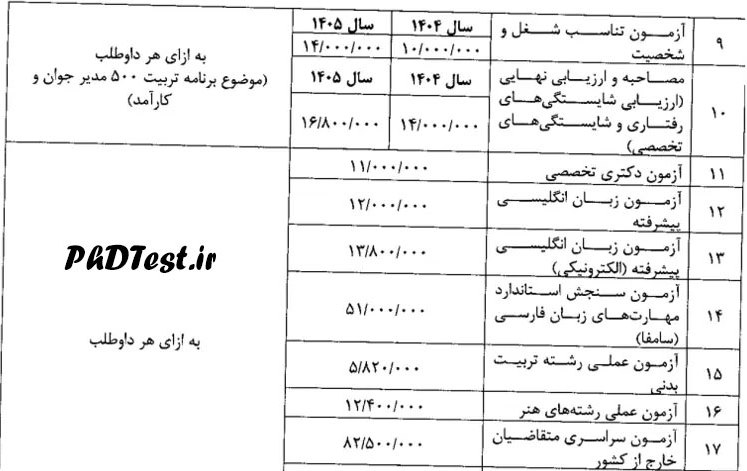 ۹
آزمون تناسب شغل و
شخصیت
سال ۱۴۰۴
سال ۱۴۰۵
۱۰/۰۰۰/۰۰۰
۱۴/۰۰۰/۰۰۰
به ازای هر داوطلب
(موضوع برنامه تربیت ۵۰۰ مدیر جوان و
کارآمد)
۱۰
مصاحبه و ارزیابی نهایی
(ارزیابی شایستگی‌های
رفتاری و شایستگی‌های
تخصصی)
سال ۱۴۰۴
سال ۱۴۰۵
۱۴/۰۰۰/۰۰۰
۱۶/۸۰۰/۰۰۰
۱۱
آزمون دکتری تخصصی
۱۱/۰۰۰/۰۰۰
۱۲
آزمون زبان انگلیسی
پیشرفته
۱۲/۰۰۰/۰۰۰
۱۳
آزمون زبان انگلیسی
پیشرفته (الکترونیکی)
۱۳/۸۰۰/۰۰۰
۱۴
آزمون سنجش استاندارد
مهارت‌های زبان فارسی
(سامفا)
۵۱/۰۰۰/۰۰۰
۱۵
آزمون عملی رشته تربیت
بدنی
۵/۸۲۰/۰۰۰
۱۶
آزمون عملی رشته‌های هنر
۱۲/۴۰۰/۰۰۰
۱۷
آزمون سراسری متقاضیان
خارج از کشور
۸۲/۵۰۰/۰۰۰
PhDTest.ir
به ازای هر داوطلب